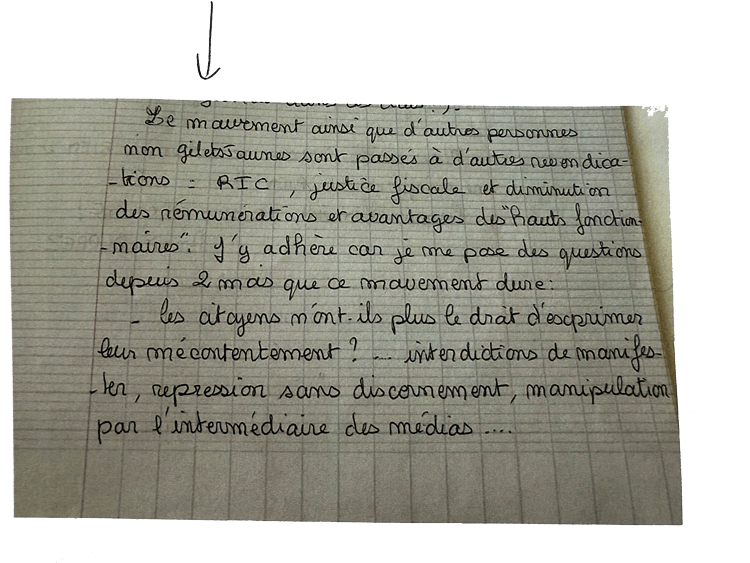 Le mouvement ainsi que d'autres personnes
non gilets Jaunes sont passés à d'autres revendica-
-tions : RIC, justice fiscale et diminution
des rémunérations et avantages des "hauts fonction-
-naires". J'y adhère car je me pose des questions
depuis 2 mois que ce mouvement dure :
- les citoyens n'ont-ils plus le droit d'exprimer
leur mécontentement ? ... interdictions de manifes-
-ter, repression sans discernement, manipulation
par l'intermédiaire des médias ....